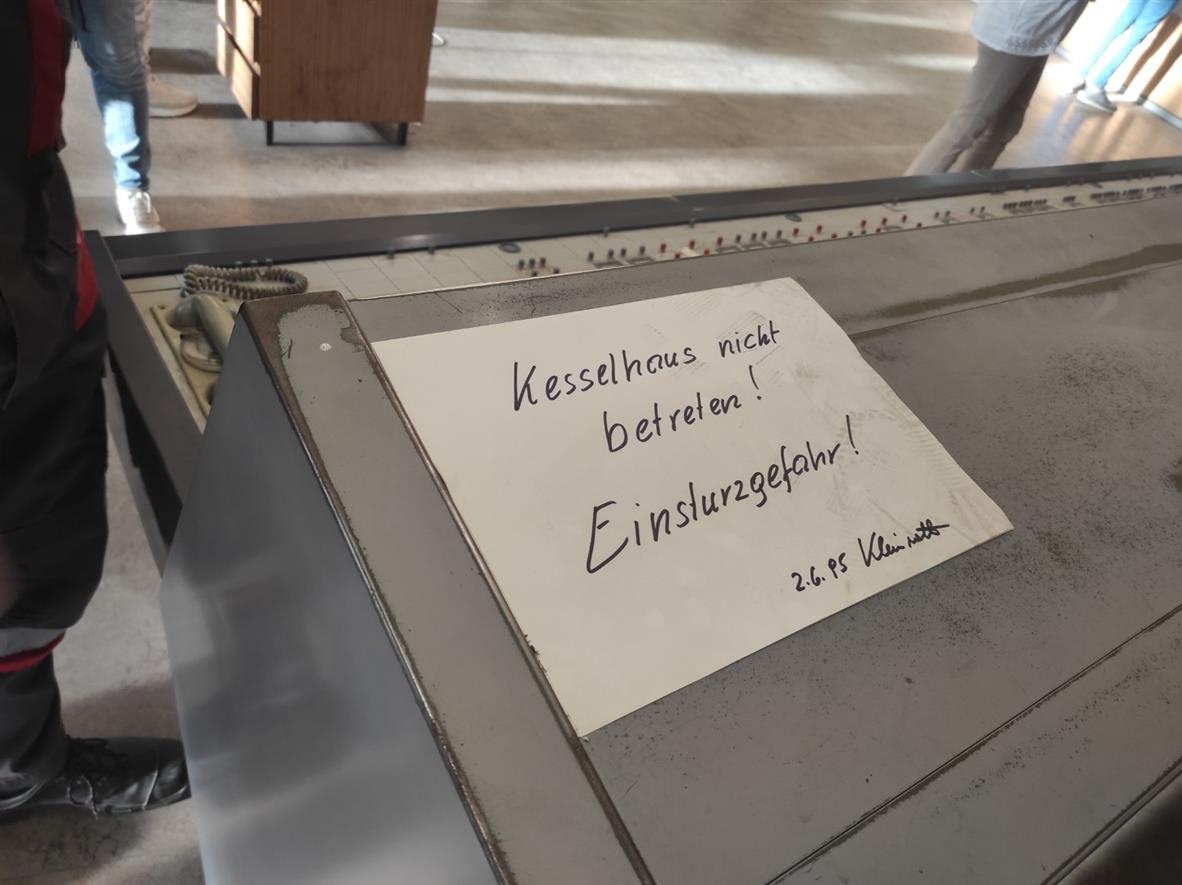 Kesselhaus nicht
betreten!
Einsturzgefahr!
2.6.95